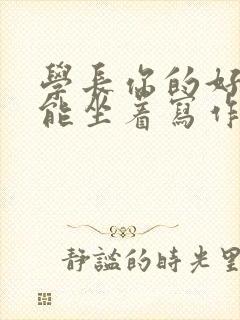 學長你的好
能坐着寫作
靜謐的時光里